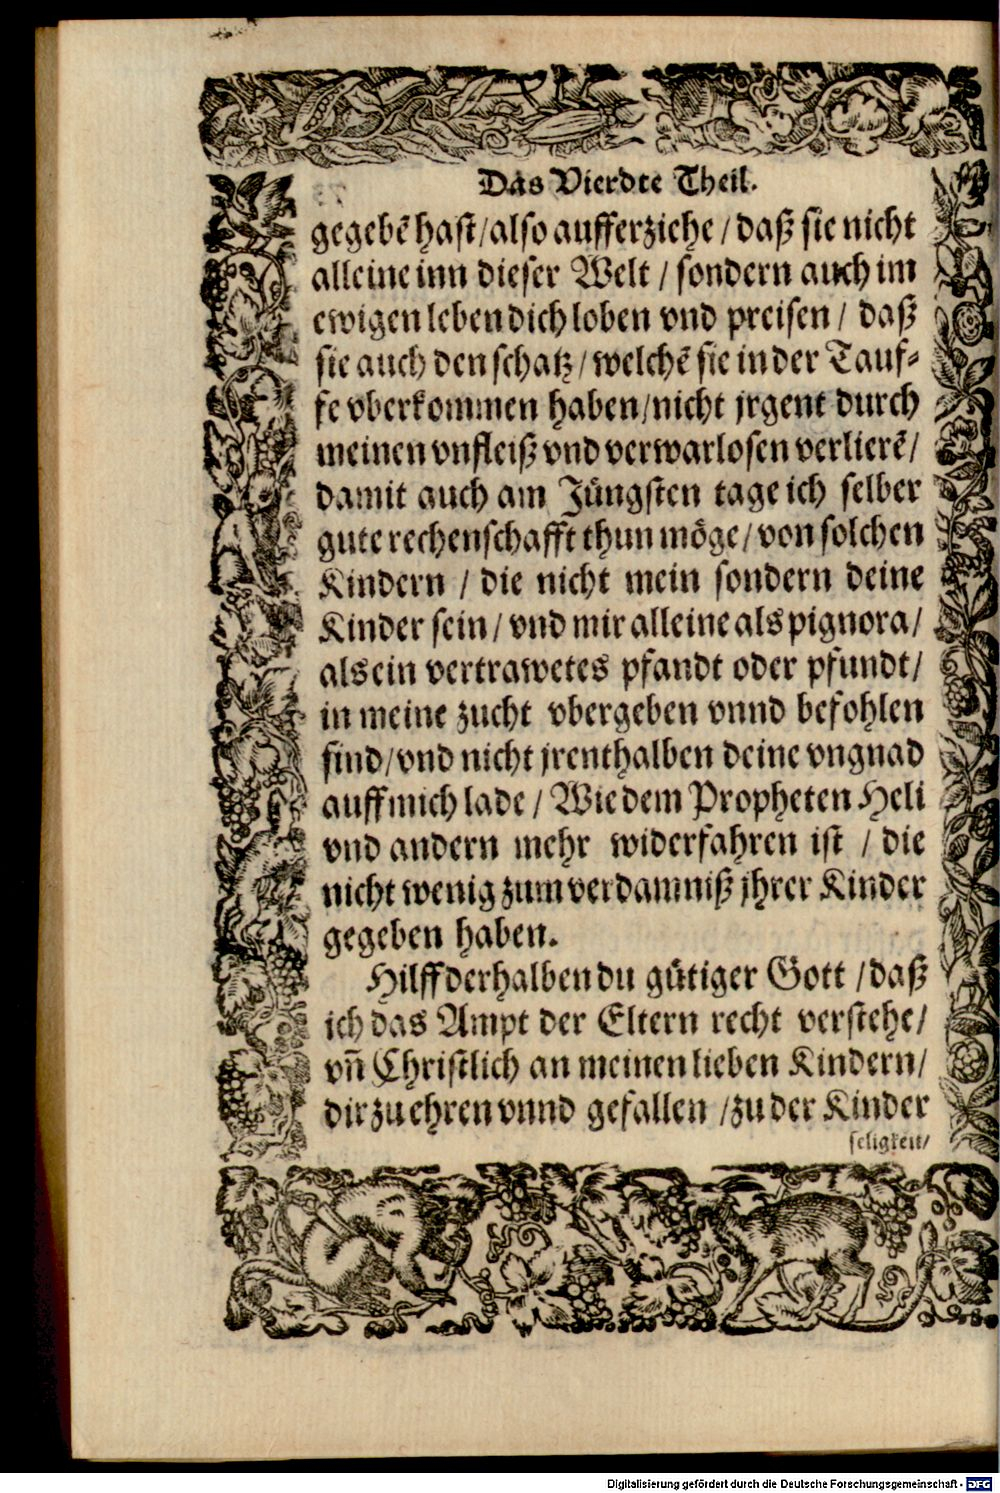 Das Vierdte Theil.
gegebē hast/also aufferziehe / daß sie nicht
alleine inn dieser Welt / sondern auch im
ewigen leben dich loben vnd preisen / daß
sie auch den schatz / welchē sie in der Tauf-
fe vberkommen haben/nicht jrgent durch
meinen vnfleiß vnd verwarlosen verlierē/
damit auch am Jüngsten tage ich selber
gute rechenschafft thun möge / von solchen
Kindern / die nicht mein sondern deine
Kinder sein / vnd mir alleine als pignora/
als ein vertrawetes pfandt oder pfundt/
in meine zucht vbergeben vnnd befohlen
sind/vnd nicht jrenthalben deine vngnad
auff mich lade / Wie dem Propheten Heli
vnd andern mehr widerfahren ist / die
nicht wenig zum verdamniß jhrer Kinder
gegeben haben.
Hilff derhalben du gütiger Gott / daß
ich das Ampt der Eltern recht verstehe/
vñ Christlich an meinen lieben Kindern/
dir zu ehren vnnd gefallen /zu der Kinder
seligkeit/
Digitalisierung gefördert durch die Deutsche Forschungsgemeinschaft - DFG